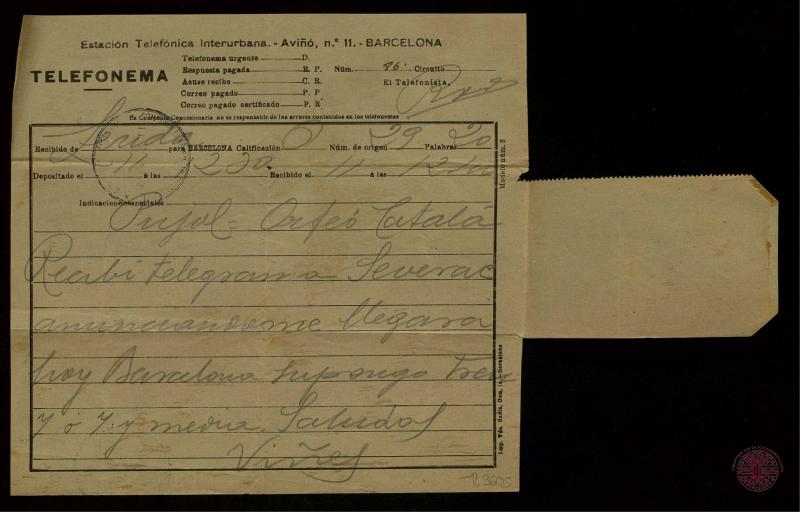 Estación Telefónica Interurbana. - Aviñó, n.º 11. - BARCELONA
TELEFONEMA
Telefonema urgente D.
Respuesta pagada R. P.
Acuse recibo C. R.
Correo pagado P. P
Correo pagado certificado P. R.
Núm. 96. Circuito
El Telefonista,
La Compañía Concesionaria no es responsable de los errores contenidos en los telefonemas
Recibido de Lérida para BARCELONA Calificación O Núm. de origen 29 Palabras 20
Depositado el 11 á las Recibido el 11 á las
Indicaciones especiales
Pujol = Orfeó Catalá
Recibi telegrama Severac
anunciandome llegara
hoy Barcelona supongo tren
7 ó 7 y media. Saludos
Viñes
Modelo núm. 2
Imp. Vda. Badia, Dou, 14.-Barcelona